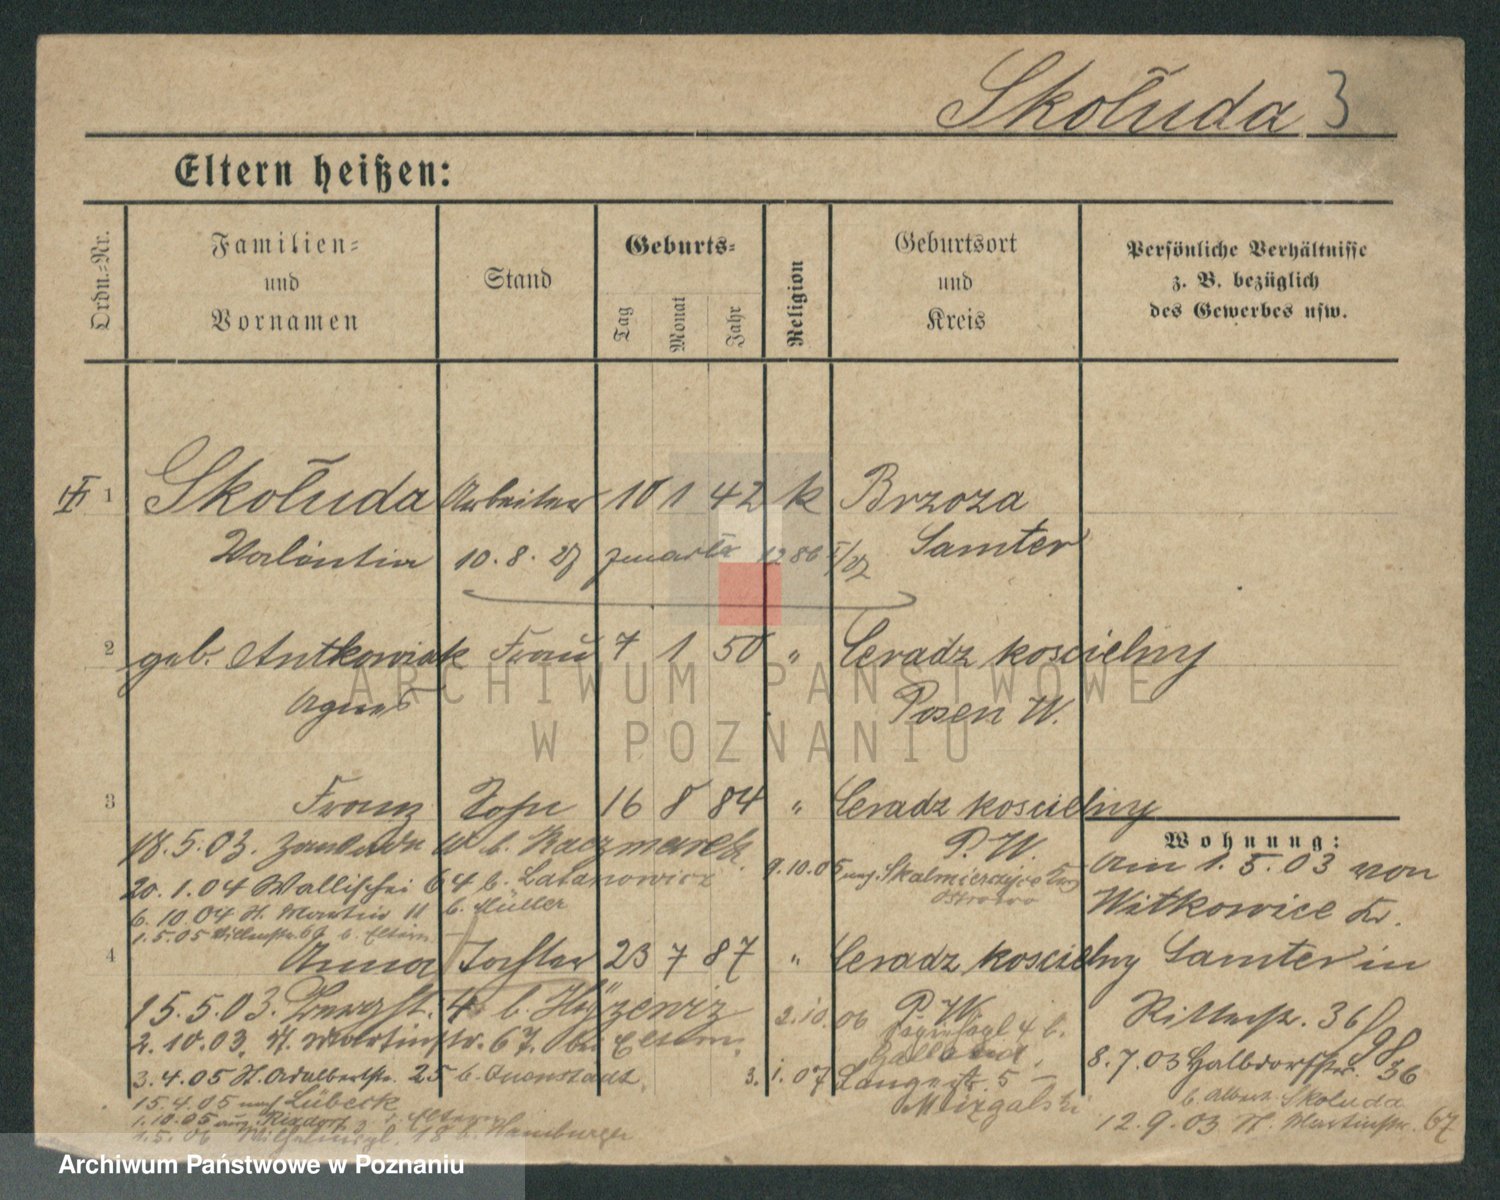 Skołuda 3
Eltern heißen:
Ordn.=Nr.
Familien=
und
Vornamen
Stand
Geburts=
Tag
Monat
Jahr
Religion
Geburtsort
und
Kreis
Persönliche Verhältnisse
z. B. bezüglich
des Gewerbes usw.
1 Skołuda Arbeiter 10 1 42 k Brzoza
Valentin 10. 8. 27 1286 Samter
2 geb. Antkowiak Frau 7 1 50 " Ceradz koscielny
Agnes Posen W.
3 Franz Sohn 16 8 84 " Ceradz koscielny
P. W.
18.5.03. b. Kaczmarek.
20.1.04 Wallischei 64 b. Latanowicz
9.10.05 Skalmierzyce
Ostrowo
6.10.04 St. Martin 11 b. Müller
1.5.05 67 b. Eltern
Wohnung:
Am 1.5.03 von
Witkowice Kr.
Samter in
Ritterst. 36
8.7.03 Halbdorfstr. 36
b. Skoluda
12.9.03 St. Martinstr. 67
4 Anna Tochter 23 7 87 " Ceradz koscielny
P. W.
15.5.03. 4 b.
2.10.03. St. Martinstr. 67. bei Eltern.
2.10.06 4 b.
3.4.05 St. Adalbertstr. 25 b.
3.1.07 Langestr. 5
Mizgalski
15.4.05 nach Lübeck
1.10.05 aus Rixdorf Eltern
1.5.06 18 b. Hamburger
ARCHIWUM PAŃSTWOWE
W POZNANIU
Archiwum Państwowe w Poznaniu